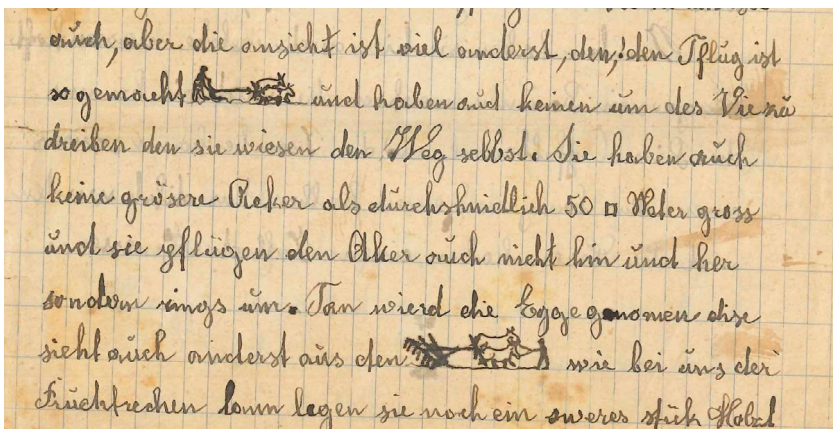 auch, aber die ansicht ist viel anderst, den, den Pflug ist
so gemacht und haben aud keinen um des Vie zu
dreiben den sie wiesen den Weg selbst. Sie haben auch
keine grösere Acker als durchshnidlich 50 □ Meter gross
und sie pflügen den Aker auch nicht hin und her
sondern rings um. Tan wierd die Egge genomen dise
sieht auch anderst aus den wie bei uns der
legen sie noch ein sweres stük Hobel